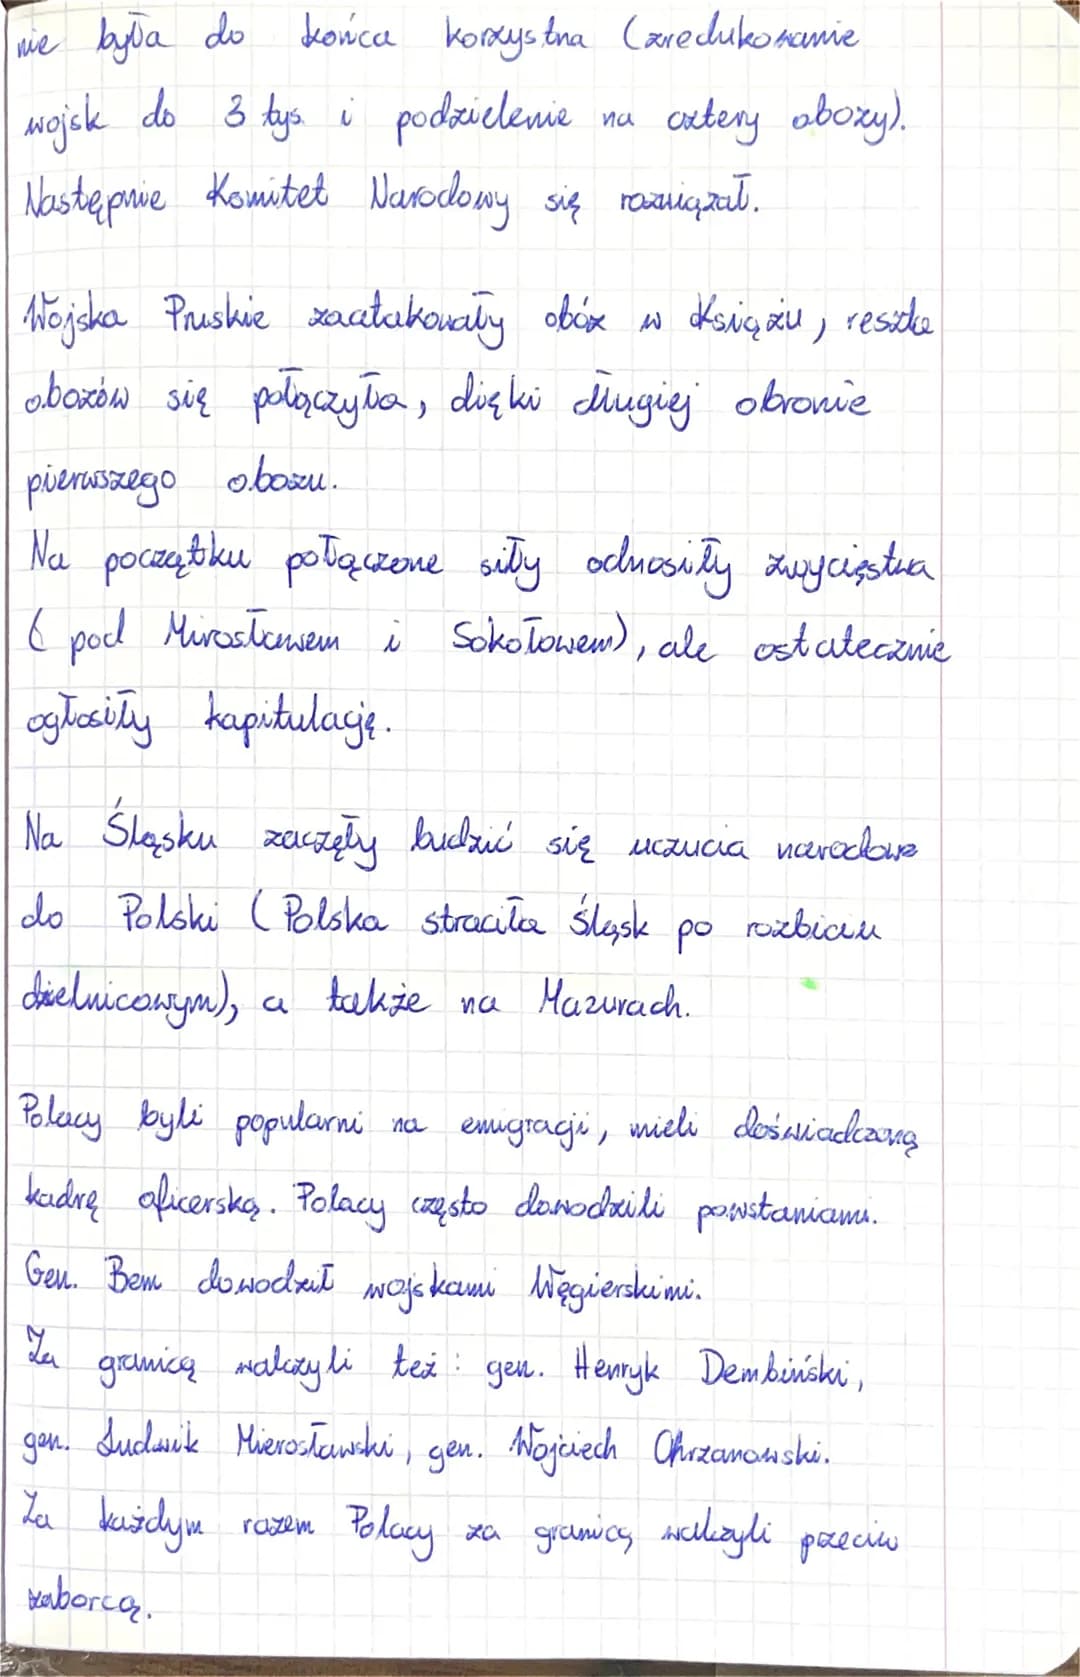 nie była do końca korzystna (zredukowanie
wojsk do 3 tys. i podzielenie na cztery obozy).
Następnie Komitet Narodowy się rozwiązał.
Wojska Pruskie zaatakowały obóz w Książu, reszta
obozów się połączyła, dięki długiej obronie
pierwszego obozu.
Na początku połączone siły odnosiły zwycięstwa
( pod Mirosławem i Sokołowem), ale ostatecznie
ogłosiły kapitulację.
Na Śląsku zaczęły budzić się uczucia narodowe
do Polski (Polska straciła Śląsk po rozbiciu
dzielnicowym), a także na Mazurach.
Polacy byli popularni na emigracji, mieli doświadczoną
kadrę oficerską. Polacy często dowodzili powstaniami.
Gen. Bem dowodził wojskami Węgierskimi.
Za granicą walczyli też: gen. Henryk Dembiński,
gen. Ludwik Mierosławski, gen. Wojciech Chrzanowski.
Za każdym razem Polacy za granicą walczyli przeciw
zaborcą.